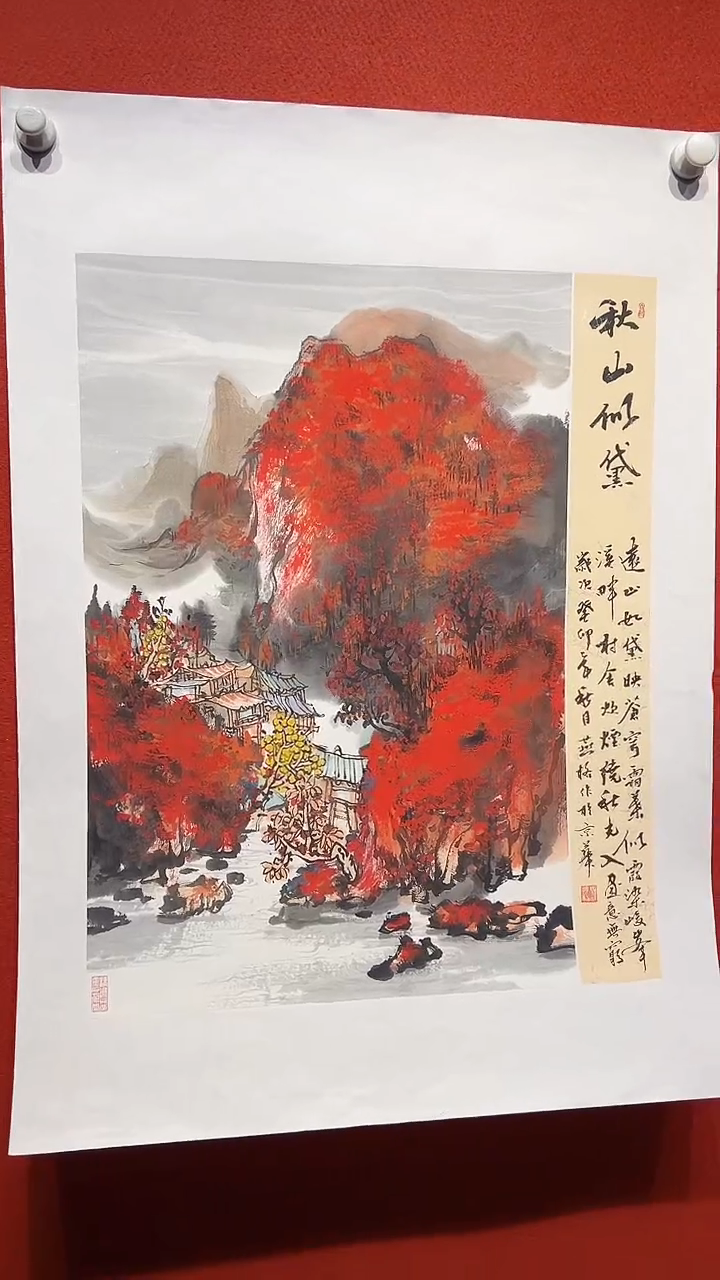 秋山似黛
遠山如黛映蒼穹霜葉似霞染峻峯
溪畔村舍炊煙繞秋光入畫意無窮
歲次癸卯年秋月燕 作於京華